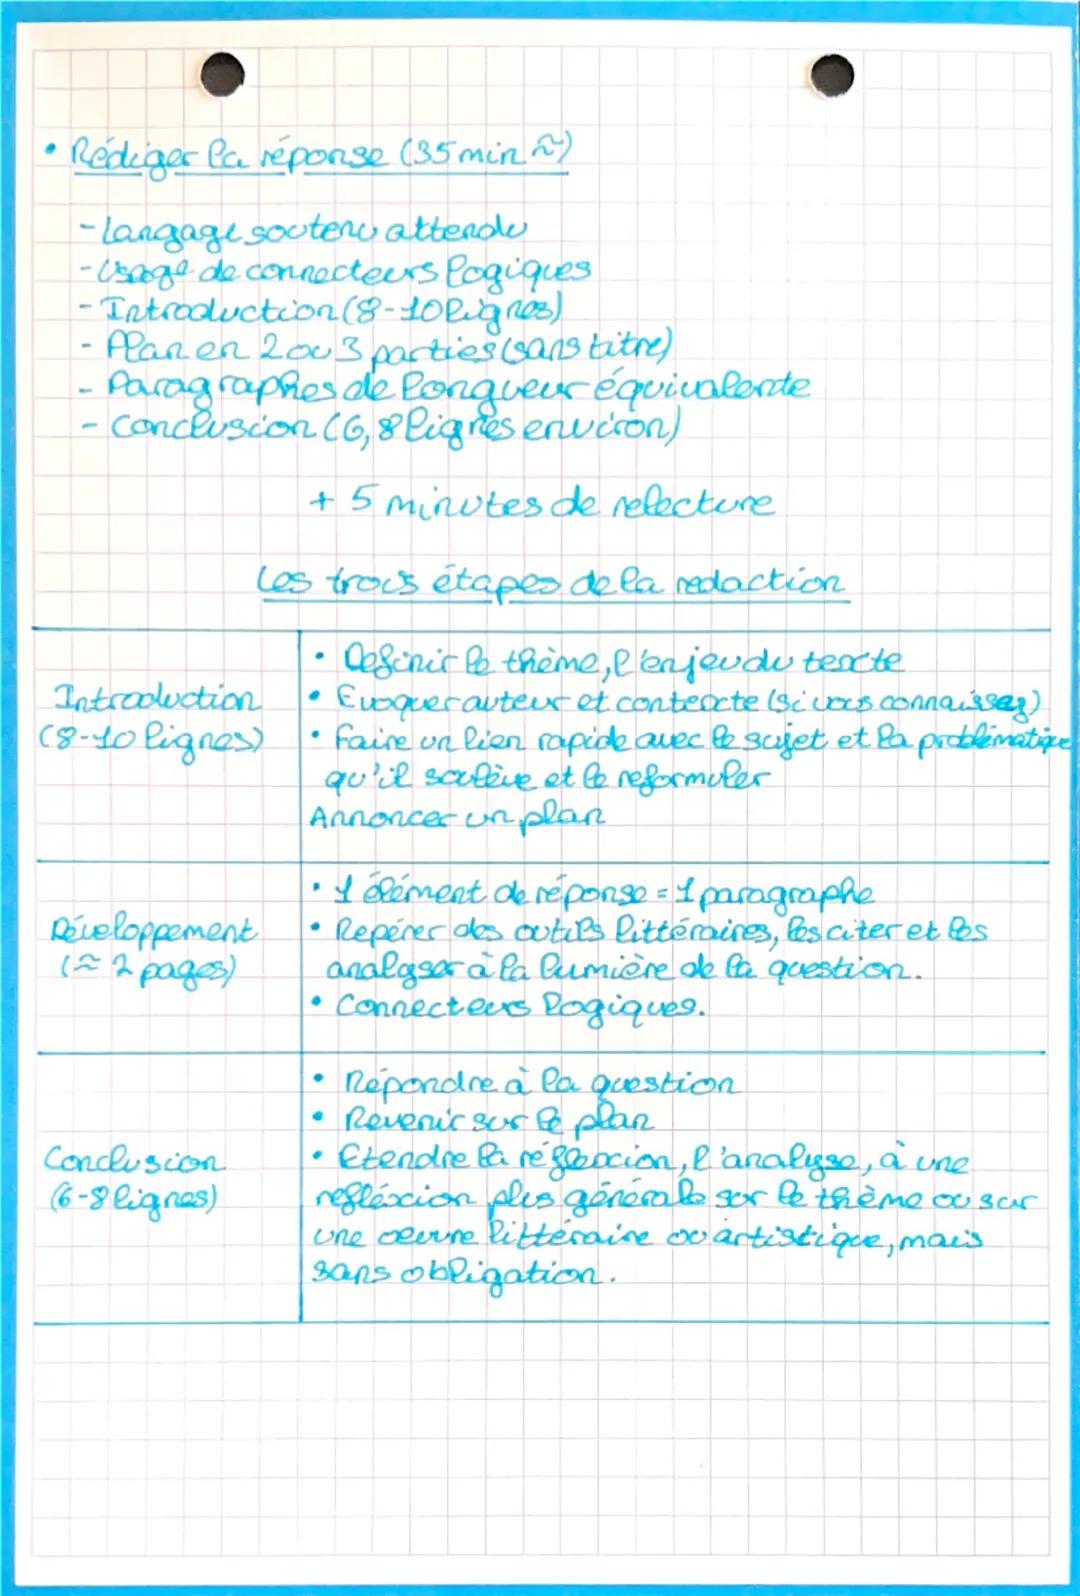 • Rédiger la réponse (35 min ≈)
- Langage soutenu attendu
- Usage de connecteurs logiques
- Introduction (8-10 lignes)
- Plan en 2 ou 3 parties (sans titre)
- Paragraphes de longueur équivalente
- Conclusion (6, 8 lignes environ)
+ 5 minutes de relecture
Les trois étapes de la redaction
Introduction
(8-10 lignes)
• Definir le thème, l'enjeu du texte
• Evoquer auteur et contexte (si vous connaissez)
• Faire un lien rapide avec le sujet et la problématique
qu'il soulève et le reformuler
Annoncer un plan
Développement
(≈ 2 pages)
• 1 élément de réponse = 1 paragraphe
• Repérer des outils littéraires, les citer et les
analyser à la lumière de la question.
• Connecteurs logiques.
Conclusion
(6-8 lignes)
• Répondre à la question
• Revenir sur le plan
• Etendre la réflexion, l'analyse, à une
refléxion plus générale sur le thème ou sur
une oeuvre littéraire ou artistique, mais
sans obligation.